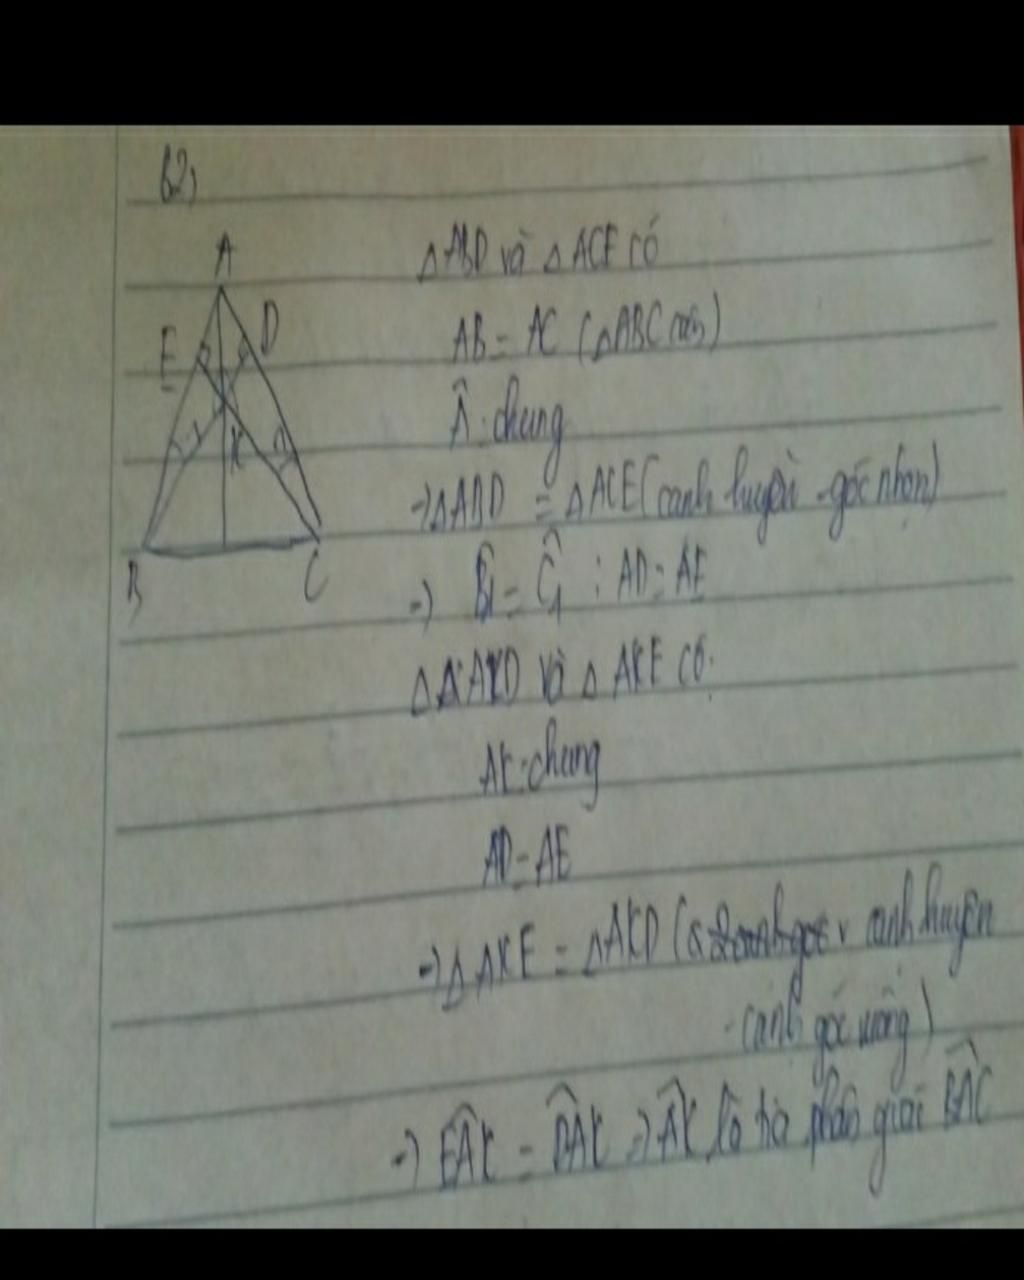 b2,
A
E
D
K
B
C
△ABD và △ACE có
AB = AC (△ABC cân)
Â: chung
=> △ABD = △ACE (cạnh huyền - góc nhọn)
=> B̂1 = Ĉ1 ; AD = AE
△AKD và △AKE có:
AK: chung
AD = AE
=> △AKE = △AKD ( cạnh huyền
- cạnh góc vuông)
=> EÂK = DÂK => AK là tia phân giác BÂC